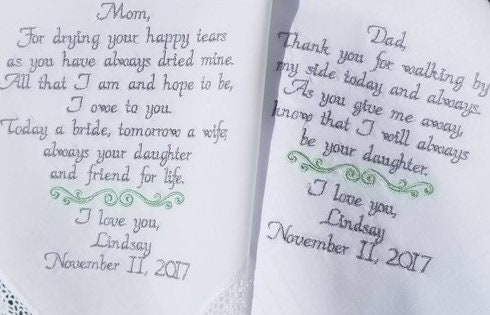 Mom,
For drying your happy tears
as you have always dried mine.
All that I am and hope to be,
I owe to you.
Today a bride, tomorrow a wife,
always your daughter
and friend for life.
I love you,
Lindsay
November 11, 2017
Dad,
Thank you for walking by
my side today and always.
As you give me away,
know that I will always
be your daughter.
I love you,
Lindsay
November 11, 2017